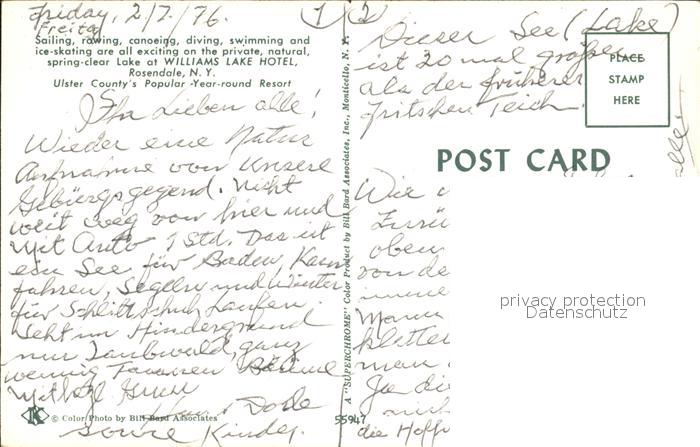 Friday, 2/7./76.
Freitag
Sailing, rowing, canoeing, diving, swimming and
ice-skating are all exciting on the private, natural,
spring-clear Lake at WILLIAMS LAKE HOTEL,
Rosendale, N. Y.
Ulster County's Popular -Year-round Resort
Ihr Lieben alle!
Wieder eine Natur
Aufnahme von unsere
Gebürgsgegend. Nicht
weit weg von hier und
Mit Auto 1 Std. Das ist
ein See für Baden, Kann
fahren, Segeln und Winter
für Schlittschuh Laufen.
Seht im Hindergrund
nur Laubwald, ganz
wennig Bäume
Mit
Dolle
sowie Kinder.
© Color Photo by Bill Bard Associates
55947
A "SUPERCHROME" Color Product by Bill Bard Associates, Inc., Monticello, N. Y.
1
2
Dieser See (Lake)
ist 20 mal größer
als der früherer
Fritschen Teich.
PLACE
STAMP
HERE
POST CARD
Wie
Zurü
oben
von de
imme
Mann
kletter
man
Ja die
nich
die Hoff
alle
privacy protection
Datenschutz